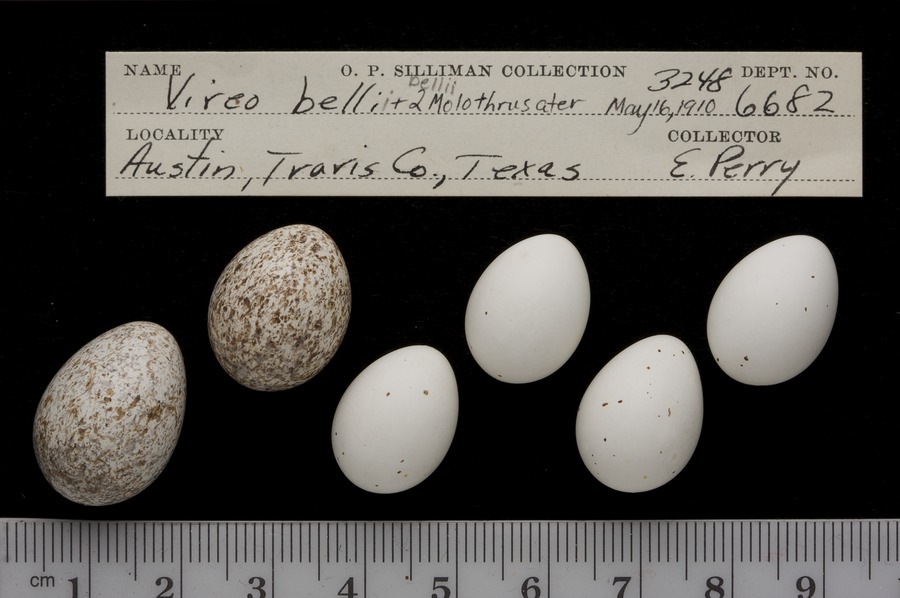 NAME O. P. SILLIMAN COLLECTION 3248 DEPT. NO.
bellii
Vireo bellii + 2 Molothrus ater May 16, 1910 6682
LOCALITY COLLECTOR
Austin, Travis Co., Texas E. Perry
cm 1 2 3 4 5 6 7 8 9